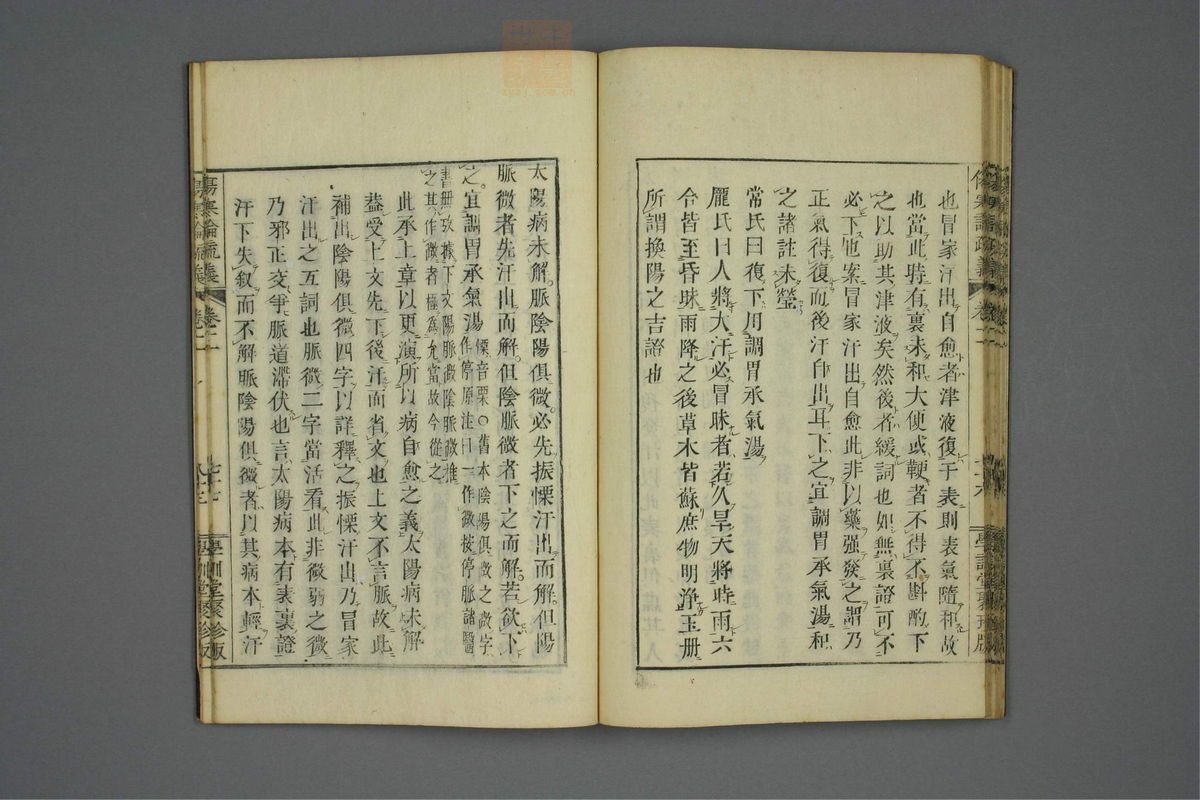 也冒家汗出自愈者津液復于表則表氣隨和故
也當此時有裏未和大便或鞕者不得不斟酌下
之以助其津液矣然後者緩詞也如無裏證可不
必下也案冒家汗出自愈此非以藥强發之謂乃
正氣得復而後汗自出耳下之宜調胃承氣湯和
之諸註未瑩
常氏曰復下用調胃承氣湯
龐氏曰人將大汗必冒昧者若久旱天將時雨六
合皆至昏昧雨降之後草木皆蘇庶物明淨玉册
所謂換陽之吉證也
太陽病未解脈陰陽俱微必先振慄汗出而解但陽
脈微者先汗出而解但陰脈微者下之而解若欲下
之宜調胃承氣湯慄音栗○舊本陰陽俱微之微字
作停原注曰一作微按停脈諸醫
書無攷據下文陽脈微陰脈微推
之其作微者極爲允當故今從之
此承上章以更演所以病自愈之義太陽病未解
蓋受上文先下後汗而省文也上文不言脈故此
補出陰陽俱微四字以詳釋之振慄汗出乃冒家
汗出之互詞也脈微二字當活看此非微弱之微
乃邪正交爭脈道滯伏也言太陽病本有表裏證
汗下失叙而不解脈陰陽俱微者以其病本輕汗
傷寒論疏義
卷二
學訓堂聚珍版